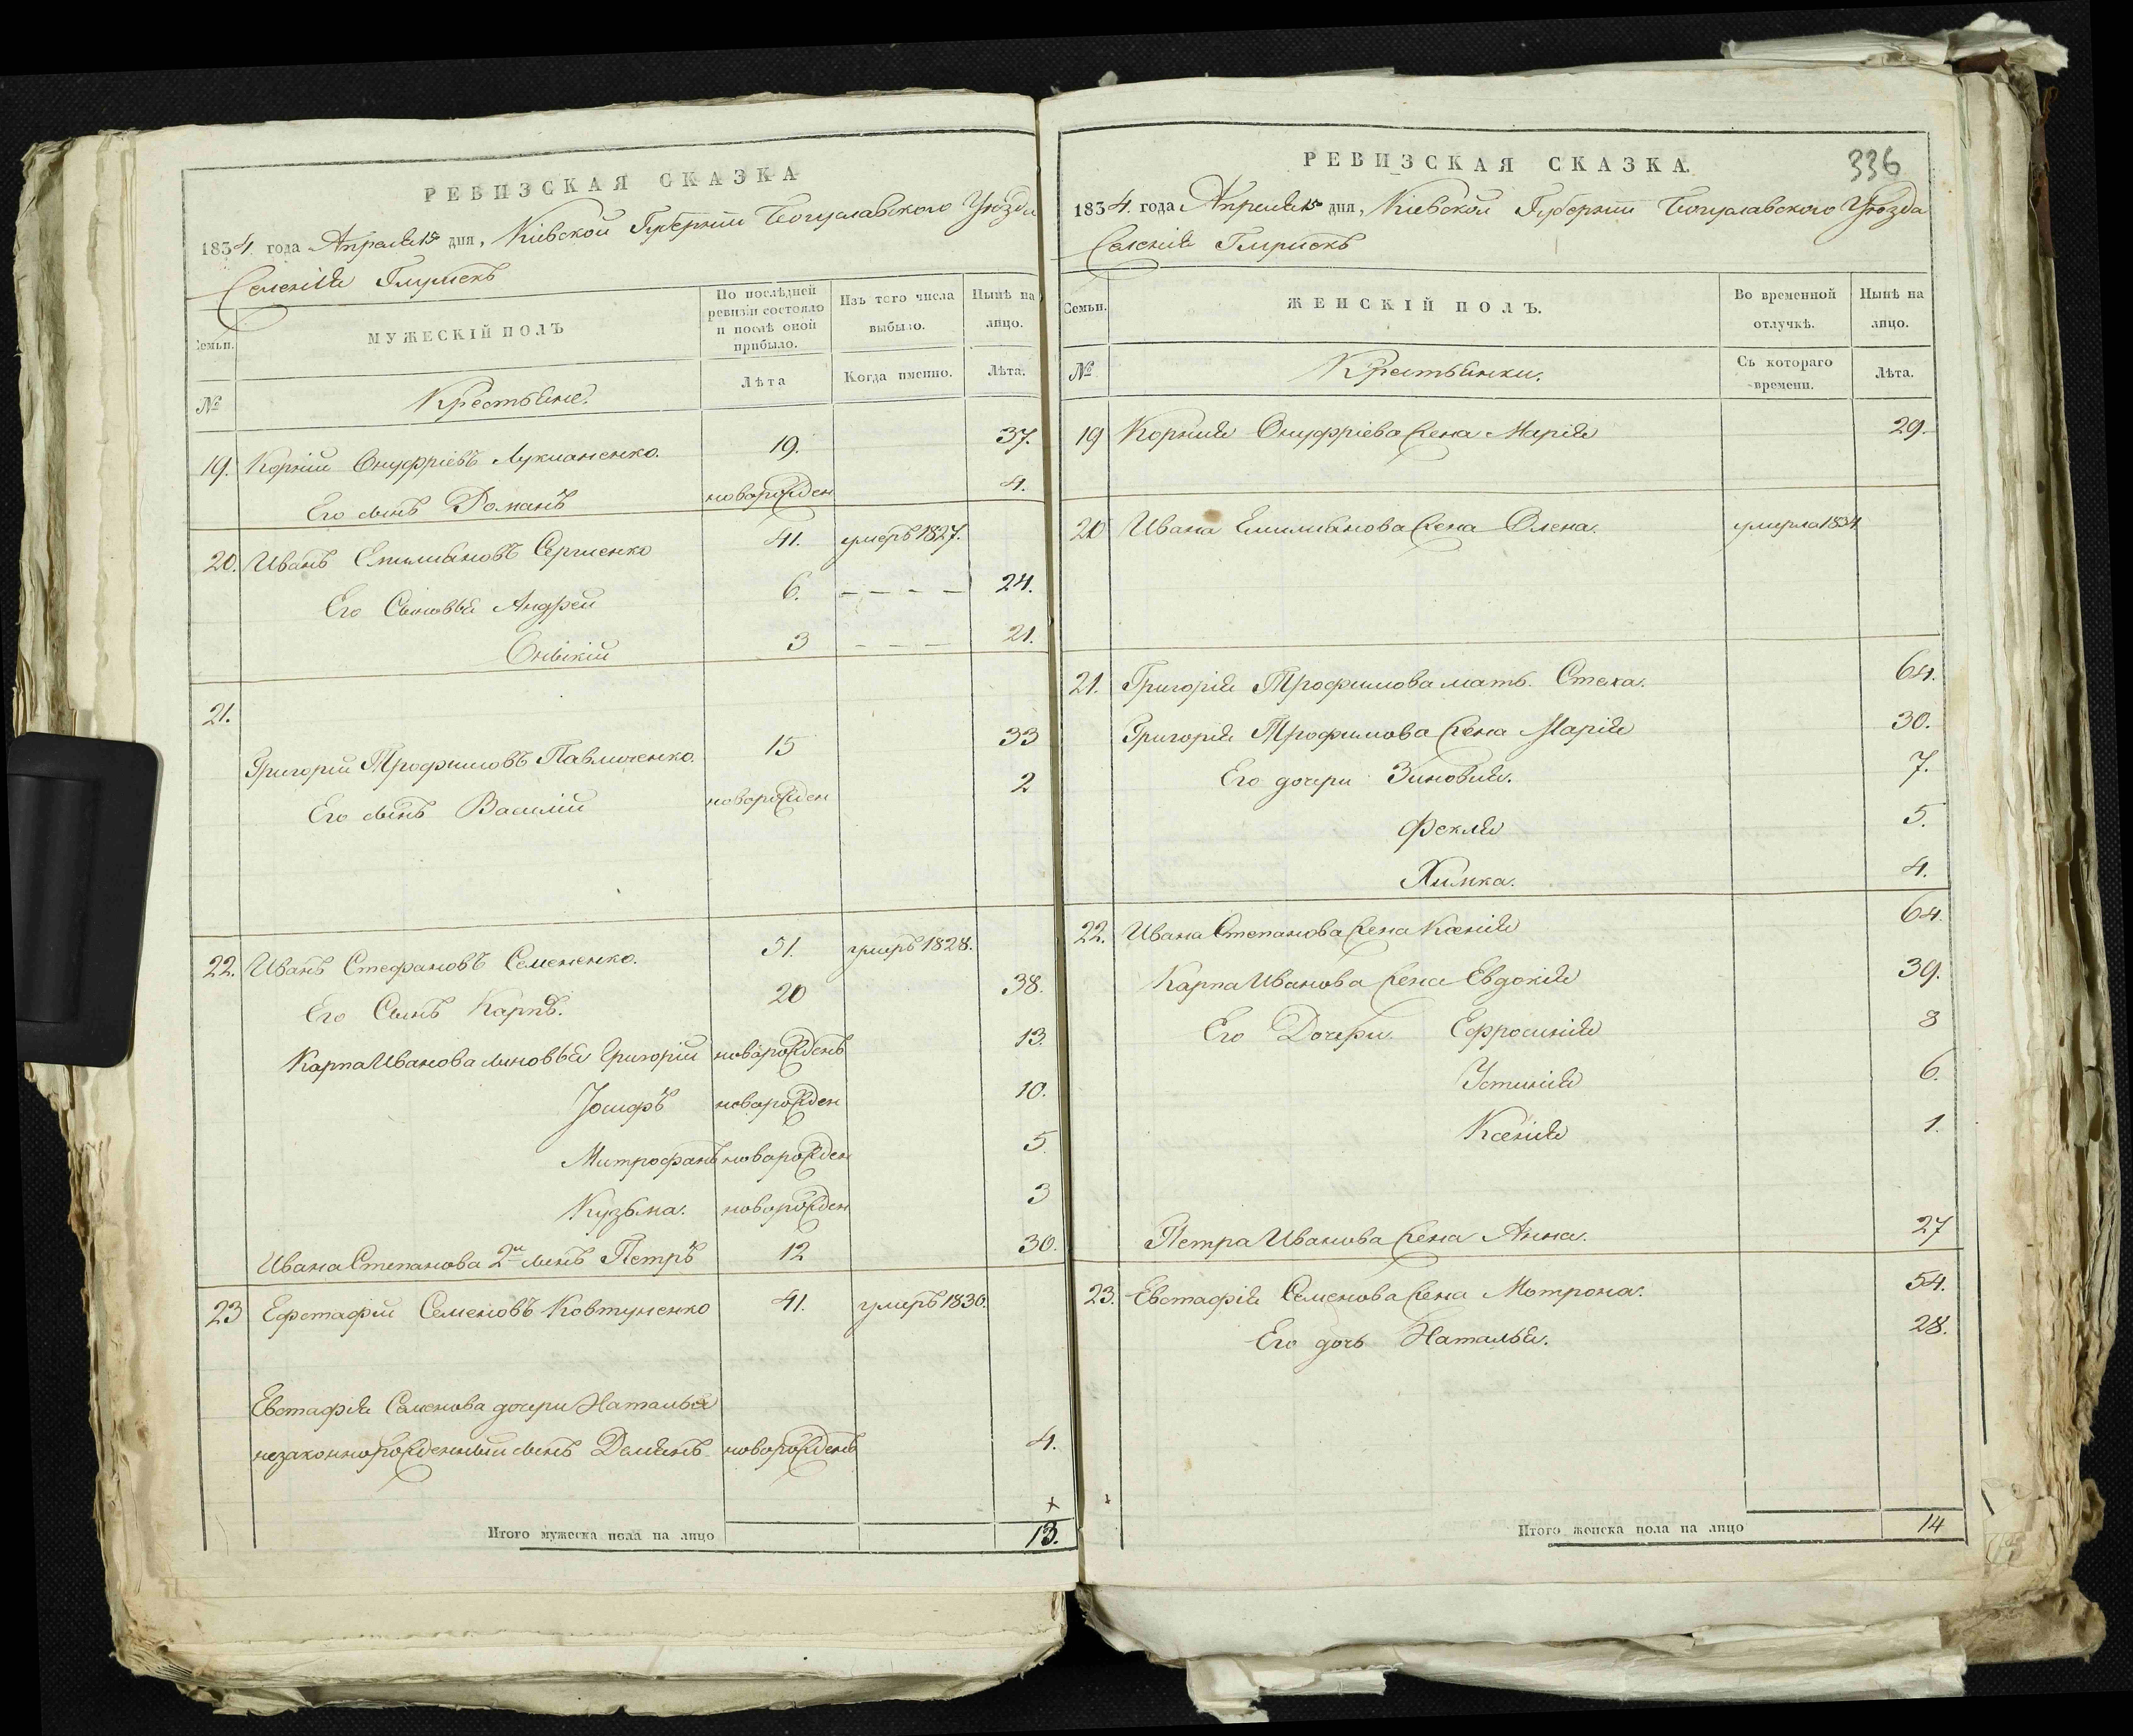 РЕВИЗСКАЯ СКАЗКА
1834 года Апреля 15 дня, Кіевской Губерніи Богуславского Уѣзда
Селенія
Семьи.
МУЖЕСКІЙ ПОЛЪ
По послѣдней ревизіи состояло и послѣ оной прибыло.
Изъ того числа выбыло.
Нынѣ на лицо.
№
Крестьяне.
Лѣта
Когда именно.
Лѣта.
19. Корній Онуфріевъ Лукианенко. 19. 37.
Его сынъ Романъ новорожден 4.
20. Иванъ Емилиановъ Сергиенко 41. умеръ 1827.
Его Сыновья Андрей 6. — — — — 24.
3 — — — 21.
21.
Григорій Трофимовъ Павличенко. 15 33
Его сынъ Василій новорожден 2
22. Иванъ Стефановъ Семененко. 51. умеръ 1828.
Его Сынъ Карпъ. 20 38.
Карпа Иванова сыновья Григорій новорожденъ 13.
Іосифъ новорожден 10.
Митрофанъ новорожден 5
Кузьма. новорожден 3
Ивана Степанова 2й сынъ Петръ 12 30.
23 Ефстафій Семеновъ Ковтуненко 41. умеръ 1830.
Евстафія Семенова дочери Натальи
незаконнорожденный сынъ Демянъ новорожденъ 4.
Итого мужеска пола на лицо 13.
336
РЕВИЗСКАЯ СКАЗКА.
1834. года Апреля 15 дня, Кіевской Губерніи Богуславского Уѣзда
Селенія
Семьи.
ЖЕНСКІЙ ПОЛЪ.
Во временной отлучкѣ.
Нынѣ на лицо.
№
Крестьянки.
Съ котораго времени.
Лѣта.
19 Корнія Онуфріева жена Марія 29.
20 Ивана Емилианова жена Олена. умерла 1834
21. Григорія Трофимова мать. Стеха. 64.
Григорія Трофимова жена Марія 30.
Его дочери Зиновия. 7.
Фекля 5.
Химка. 4.
22. Ивана Степанова жена Ксенія 64.
Карпа Иванова жена Евдокія 39.
Его Дочери Ефросинія 8
Устинія 6.
Ксенія 1.
Петра Иванова жена Анна. 27
23. Евстафія Семенова жена Мотрона. 54.
Его дочь Наталья. 28.
Итого женска пола на лицо 14